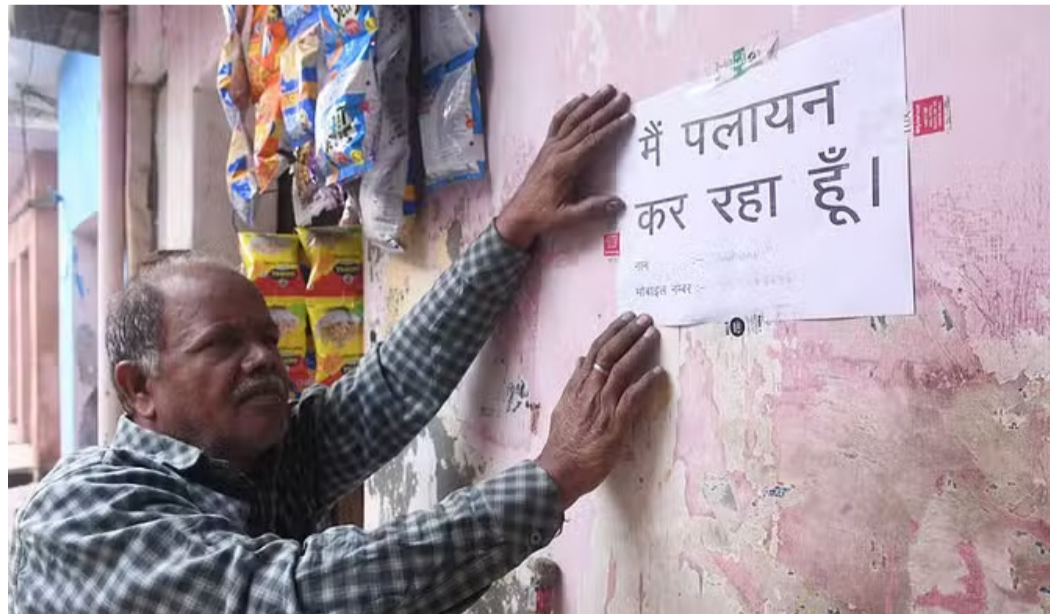 मैं पलायन
कर रहा हूँ।
नाम :-
मोबाइल नम्बर :-